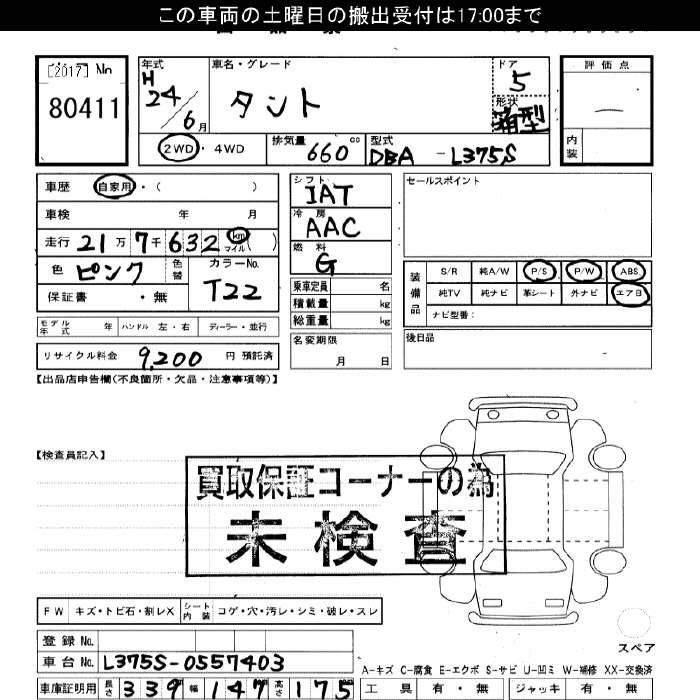 この車両の土曜日の搬出受付は17:00まで
[2017] No
80411
年式
H
24
6月
車名・グレード
タント
ドア
5
形状
箱型
評価点
内装
2WD・4WD
排気量 660 cc
型式
DBA -L375S
車歴 自家用・( )
車検 年 月
走行 21万7千632 km マイル ( )
色 ピンク 色替
カラーNo.
T22
保証書 ・無
シフト
IAT
冷房
AAC
燃料
G
乗車定員 名
積載量 kg
総重量 kg
名変期限
月 日
セールスポイント
装備品
S/R 純A/W P/S P/W ABS
純TV 純ナビ 革シート 外ナビ エアB
ナビ型番:
後日品
モデル年式 年 ハンドル 左・右 ディーラー・並行
リサイクル料金 9,200 円 預託済
【出品店申告欄(不良箇所・欠品・注意事項等)】
【検査員記入】
買取保証コーナーの為
未検査
FW キズ・トビ石・割レX
シート内装 コゲ・穴・汚レ・シミ・破レ・スレ
スペア
登録No.
車台No. L375S-0557403
車庫証明用 長さ 339 幅 147 高さ 175
A-キズ C-腐食 E-エクボ S-サビ U-凹ミ W-補修 XX-交換済
工具 有・無 ジャッキ 有・無